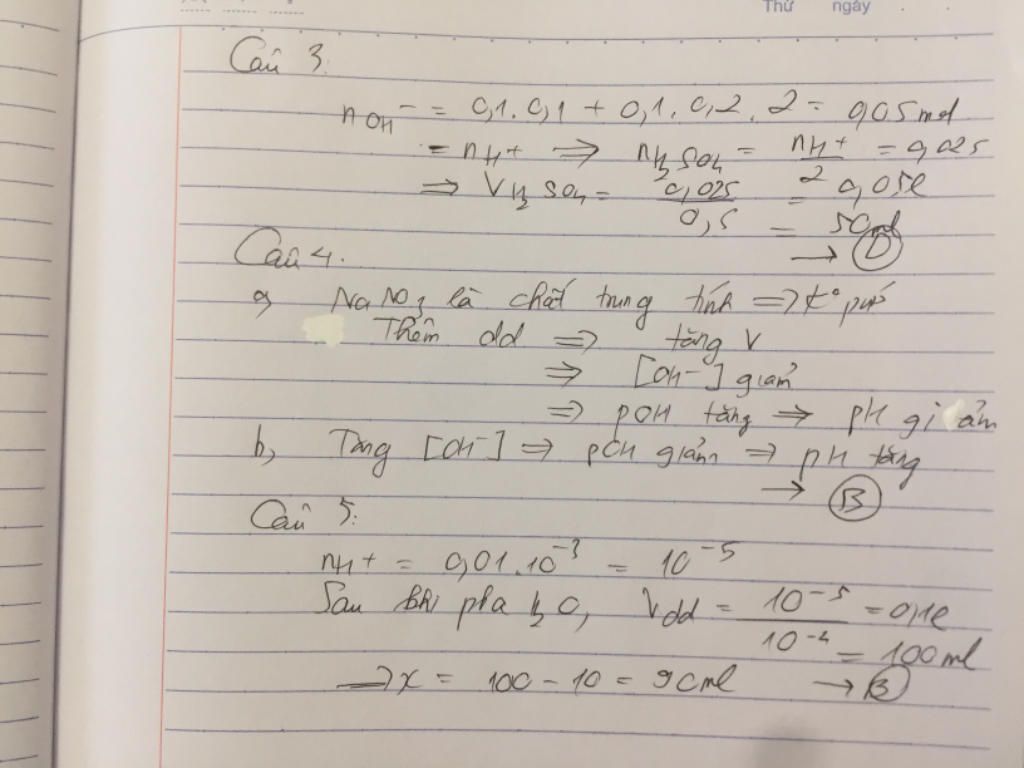 Thứ ngày
Câu 3:
nOH⁻ = 0,1.0,1 + 0,1.0,2.2 = 0,05 mol
= nH+ ⇒ nH₂SO₄ = nH+ / 2 = 0,025
⇒ VH₂SO₄ = 0,025 / 0,5 = 0,05l
= 50ml
→ D
Câu 4.
a, NaNO₃ là chất trung tính ⇒ k° pứ
Thêm dd ⇒ tăng V
⇒ [OH⁻] giảm
⇒ pOH tăng ⇒ pH giảm
b, Tăng [OH⁻] ⇒ pOH giảm ⇒ pH tăng
→ B
Câu 5:
nH+ = 0,01.10⁻³ = 10⁻⁵
Sau khi pha H₂O, Vdd = 10⁻⁵ / 10⁻⁴ = 0,1l
= 100ml
⇒ x = 100 - 10 = 90ml → B